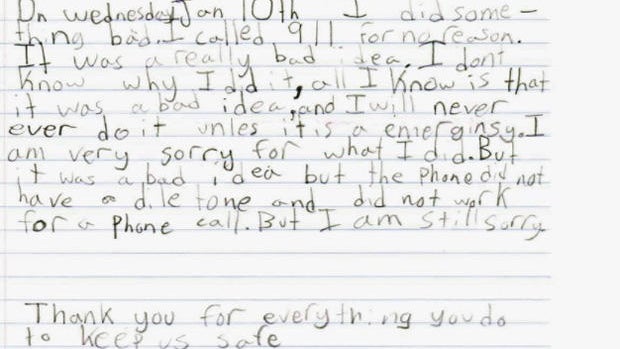 On wednesday Jan 10th I did some-
thing bad. I called 911 for no reason.
It was a really bad idea. I dont
know why I did it, all I know is that
it was a bad idea, and I will never
ever do it unles it is a emerginsy. I
am very sorry for what I did. But
it was a bad idea but the phone did not
have a dile tone and did not work
for a phone call. But I am still sorry
Thank you for everything you do
to keep us safe